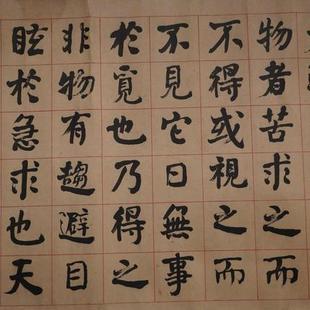 物者苦求之而
不得或視之而
不見它日無事
於覓也乃得之
非物有趨避目
眩於急求也天